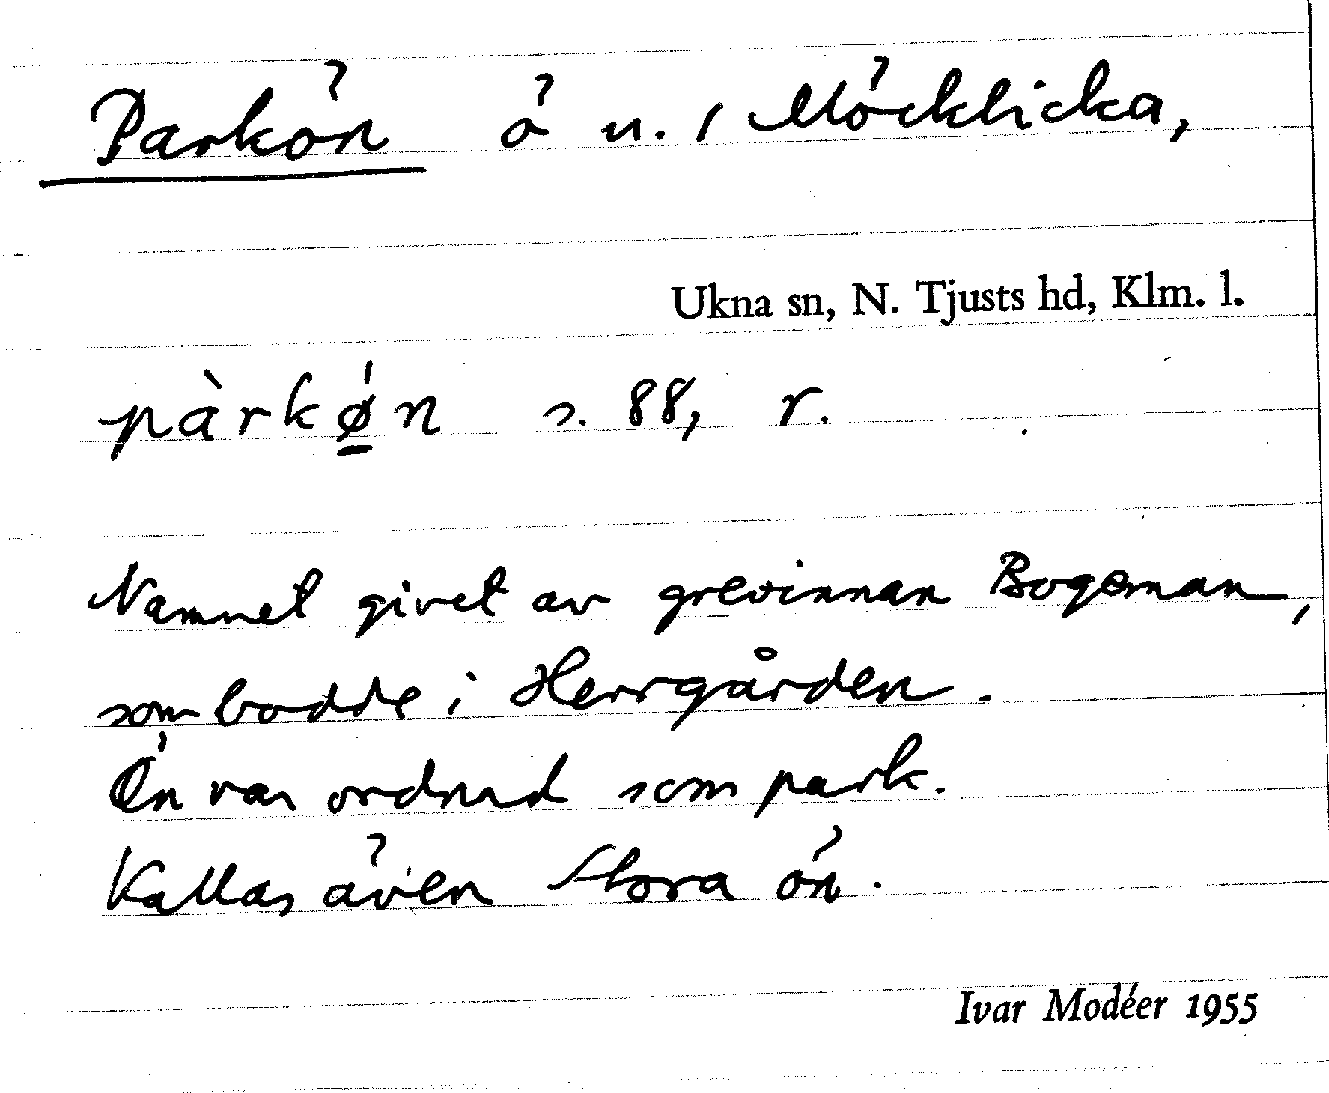 Parkön ö n. / Möcklicka,
Ukna sn, N. Tjusts hd, Klm. l.
pàrkǿ̠n s. 88, r.
Namnet givet av grevinnan Bogeman,
som bodde i Herrgården.
Ön var ordnad som park.
Kallas även Stora ön.
Ivar Modéer 1955